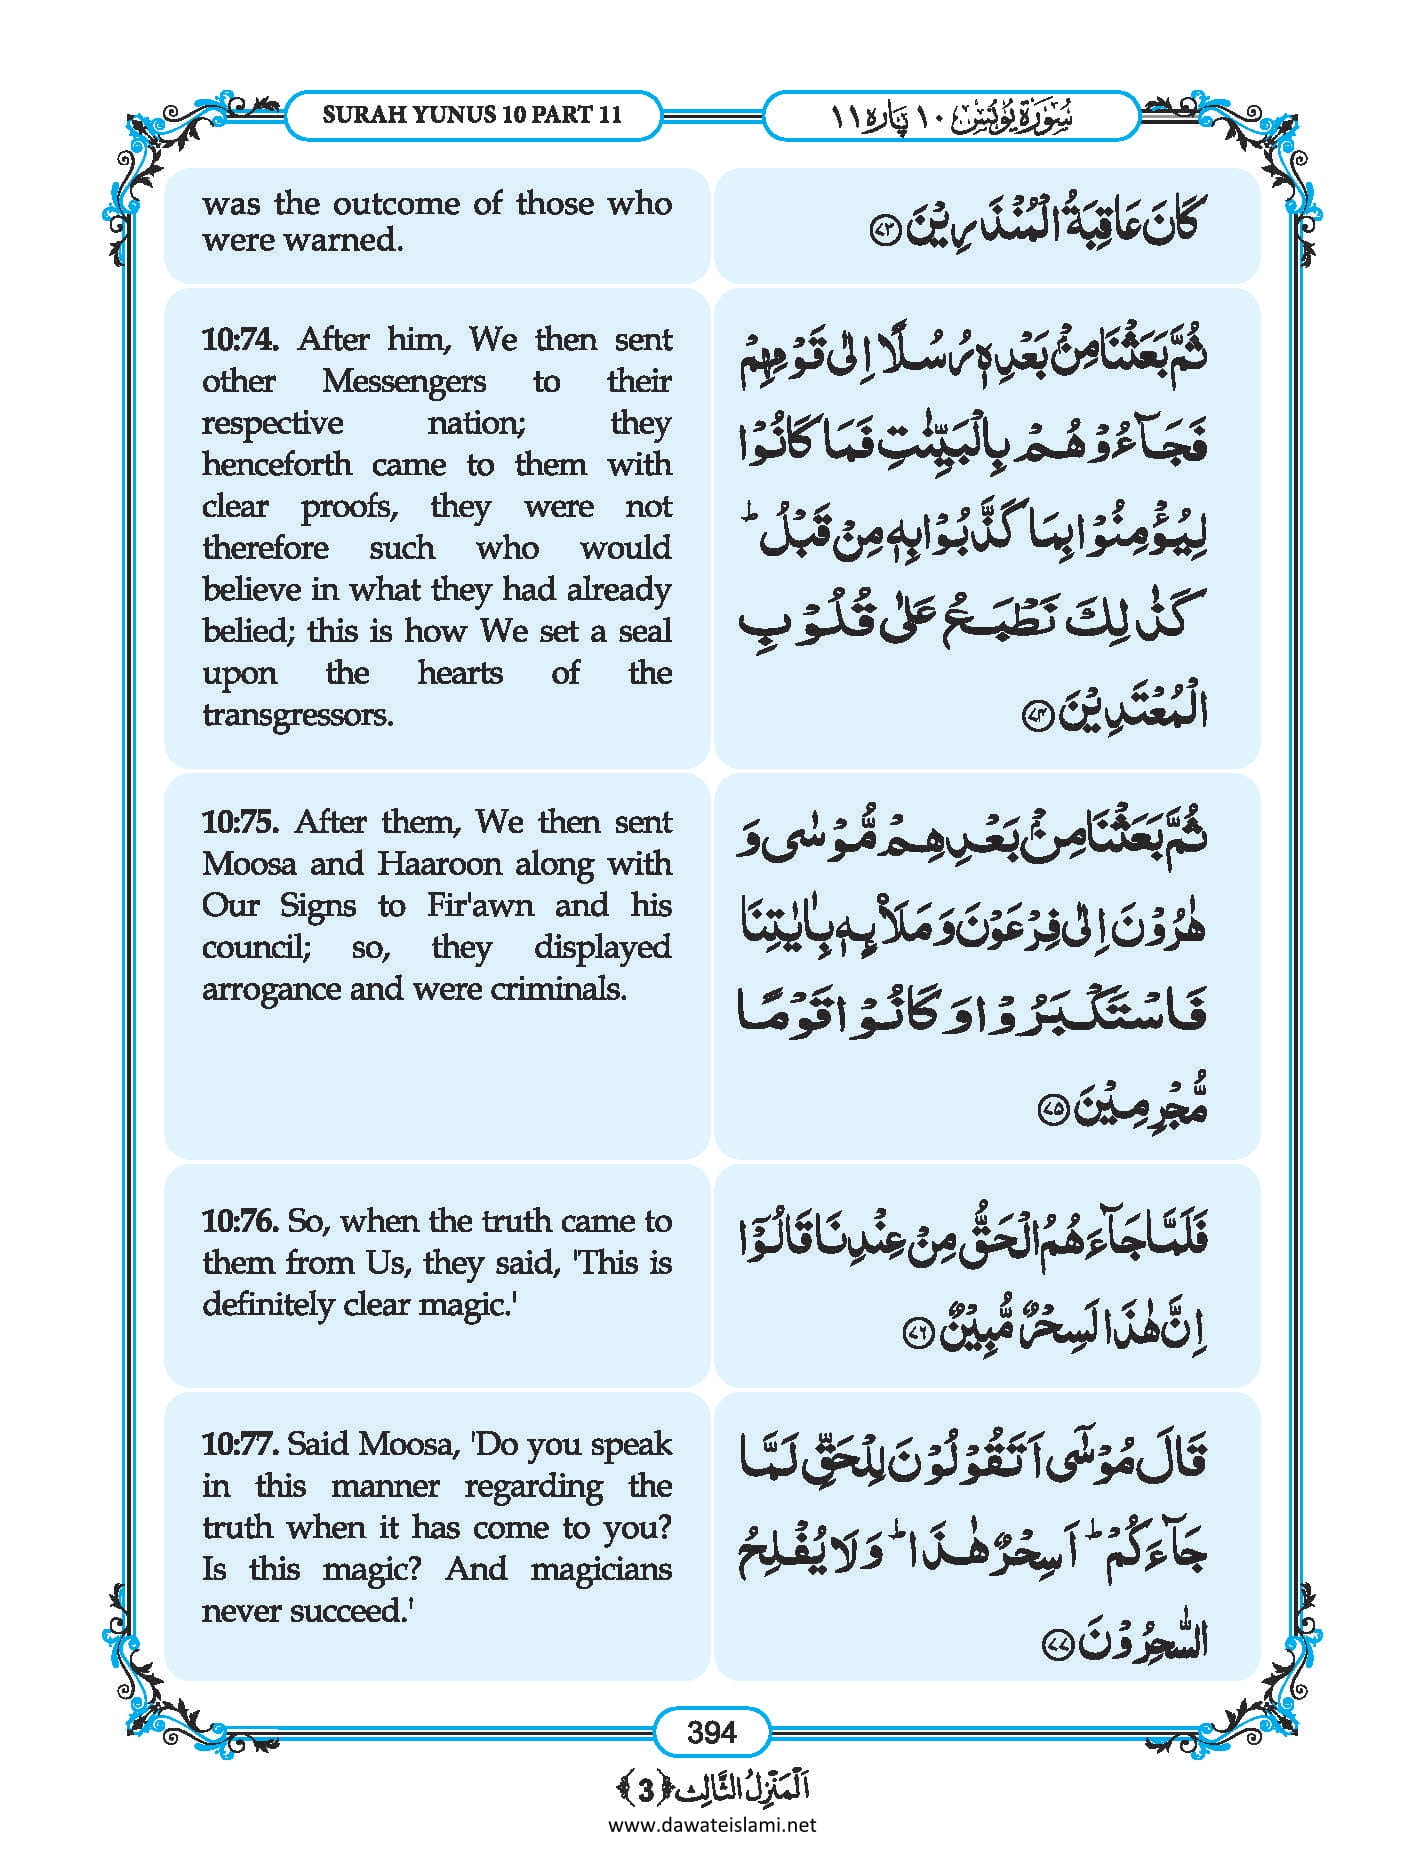 SURAH YUNUS 10 PART 11
سُوْرَةُ يُوْنُس ١٠ پَارَه ١١
was the outcome of those who
were warned.
كَانَ عَاقِبَةُ الْمُنْذَرِيْنَ ﴿۷۳﴾
10:74. After him, We then sent
other Messengers to their
respective nation; they
henceforth came to them with
clear proofs, they were not
therefore such who would
believe in what they had already
belied; this is how We set a seal
upon the hearts of the
transgressors.
ثُمَّ بَعَثْنَا مِنْۢ بَعْدِهٖ رُسُلًا اِلٰى قَوْمِهِمْ
فَجَآءُوْهُمْ بِالْبَيِّنٰتِ فَمَا كَانُوْا
لِيُؤْمِنُوْا بِمَا كَذَّبُوْا بِهٖ مِنْ قَبْلُ ؕ
كَذٰلِكَ نَطْبَعُ عَلٰى قُلُوْبِ
الْمُعْتَدِيْنَ ﴿۷۴﴾
10:75. After them, We then sent
Moosa and Haaroon along with
Our Signs to Fir'awn and his
council; so, they displayed
arrogance and were criminals.
ثُمَّ بَعَثْنَا مِنْۢ بَعْدِهِمْ مُّوْسٰى وَ
هٰرُوْنَ اِلٰى فِرْعَوْنَ وَ مَلَا۠ئِهٖ بِاٰيٰتِنَا
فَاسْتَكْبَرُوْا وَ كَانُوْا قَوْمًا
مُّجْرِمِيْنَ ﴿۷۵﴾
10:76. So, when the truth came to
them from Us, they said, 'This is
definitely clear magic.'
فَلَمَّا جَآءَهُمُ الْحَقُّ مِنْ عِنْدِنَا قَالُوْۤا
اِنَّ هٰذَا لَسِحْرٌ مُّبِيْنٌ ﴿۷۶﴾
10:77. Said Moosa, 'Do you speak
in this manner regarding the
truth when it has come to you?
Is this magic? And magicians
never succeed.'
قَالَ مُوْسٰۤى اَتَقُوْلُوْنَ لِلْحَقِّ لَمَّا
جَآءَكُمْ ؕ اَسِحْرٌ هٰذَا ؕ وَلَا يُفْلِحُ
السّٰحِرُوْنَ ﴿۷۷﴾
394
اَلْمَنْزِلُ الثَّالِث ﴿3﴾
www.dawateislami.net